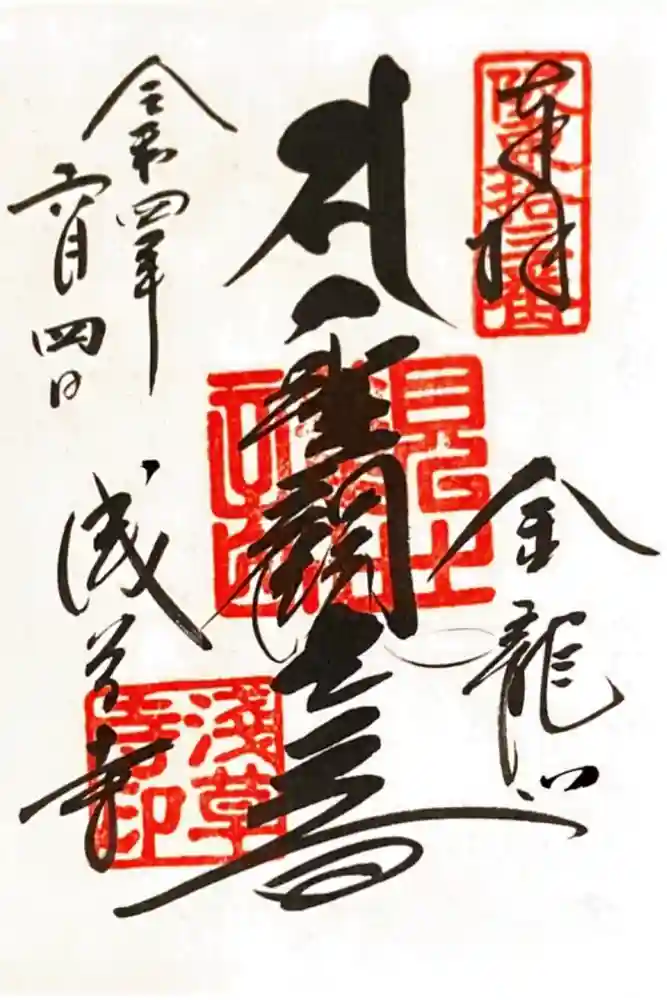 奉拝
坂東拾三番
金龍山
聖観世音
浅草寺
浅草寺印
令和四年
六月四日